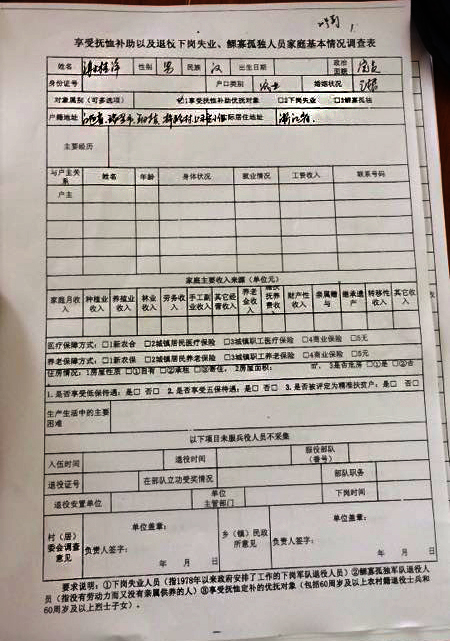 享受抚恤补助以及退役下岗失业、鳏寡孤独人员家庭基本情况调查表
姓名 性别 男 民族 汉 出生日期 政治面貌 党员
身份证号 户口类别 婚姻状况
对象属别（可多选项） ☑1享受抚恤补助优抚对象 □2下岗失业 □3鳏寡孤独
户籍地址 实际居住地址 浙江省
主要经历
与户主关系 姓名 年龄 身体状况 就业情况 工资收入 联系号码
户主
家庭主要收入来源（单位元）
家庭月收入 种植业收入 养殖业收入 林业收入 劳务收入 手工副业收入 其它经营收入 养老金收入 抚养费收 财产性收入 亲属赠与 继承遗产 转移性收入 其它收入
医疗保障方式：□1新农合 □2城镇居民医疗保险 □3城镇职工医疗保险 □4商业保险 □5无
养老保障方式：□1新农保 □2城镇居民养老保险 □3城镇职工养老保险 □4商业保险 □5无
住房情况：1房屋性质 □①自有 □②承租 □③寄住， 2房屋面积： ㎡， 3是否危房 □①是 □②否
1.是否享受低保待遇：是□ 否□ 2.是否享受五保待遇：是□ 否□ 3.是否被评定为精准扶贫户：是□ 否□
生产生活中的主要困难
以下项目未服兵役人员不采集
入伍时间 退役时间 服役部队（番号）
退役证号 在部队立功受奖情况 部队职务
退役安置单位 单位主管部门 下岗时间
村（居）委会调查意见 单位盖章： 乡（镇）民政所意见 单位盖章：
负责人签字： 负责人签字：
年 月 日 年 月 日
要求说明：①下岗失业人员（指1978年以来政府安排了工作的下岗军队退役人员）②鳏寡孤独军队退役人
员（指没有劳动力而又没有亲属供养的人）③享受抚恤定补的优抚对象（包括60周岁及以上农村籍退役士兵和
60周岁及以上烈士子女）。